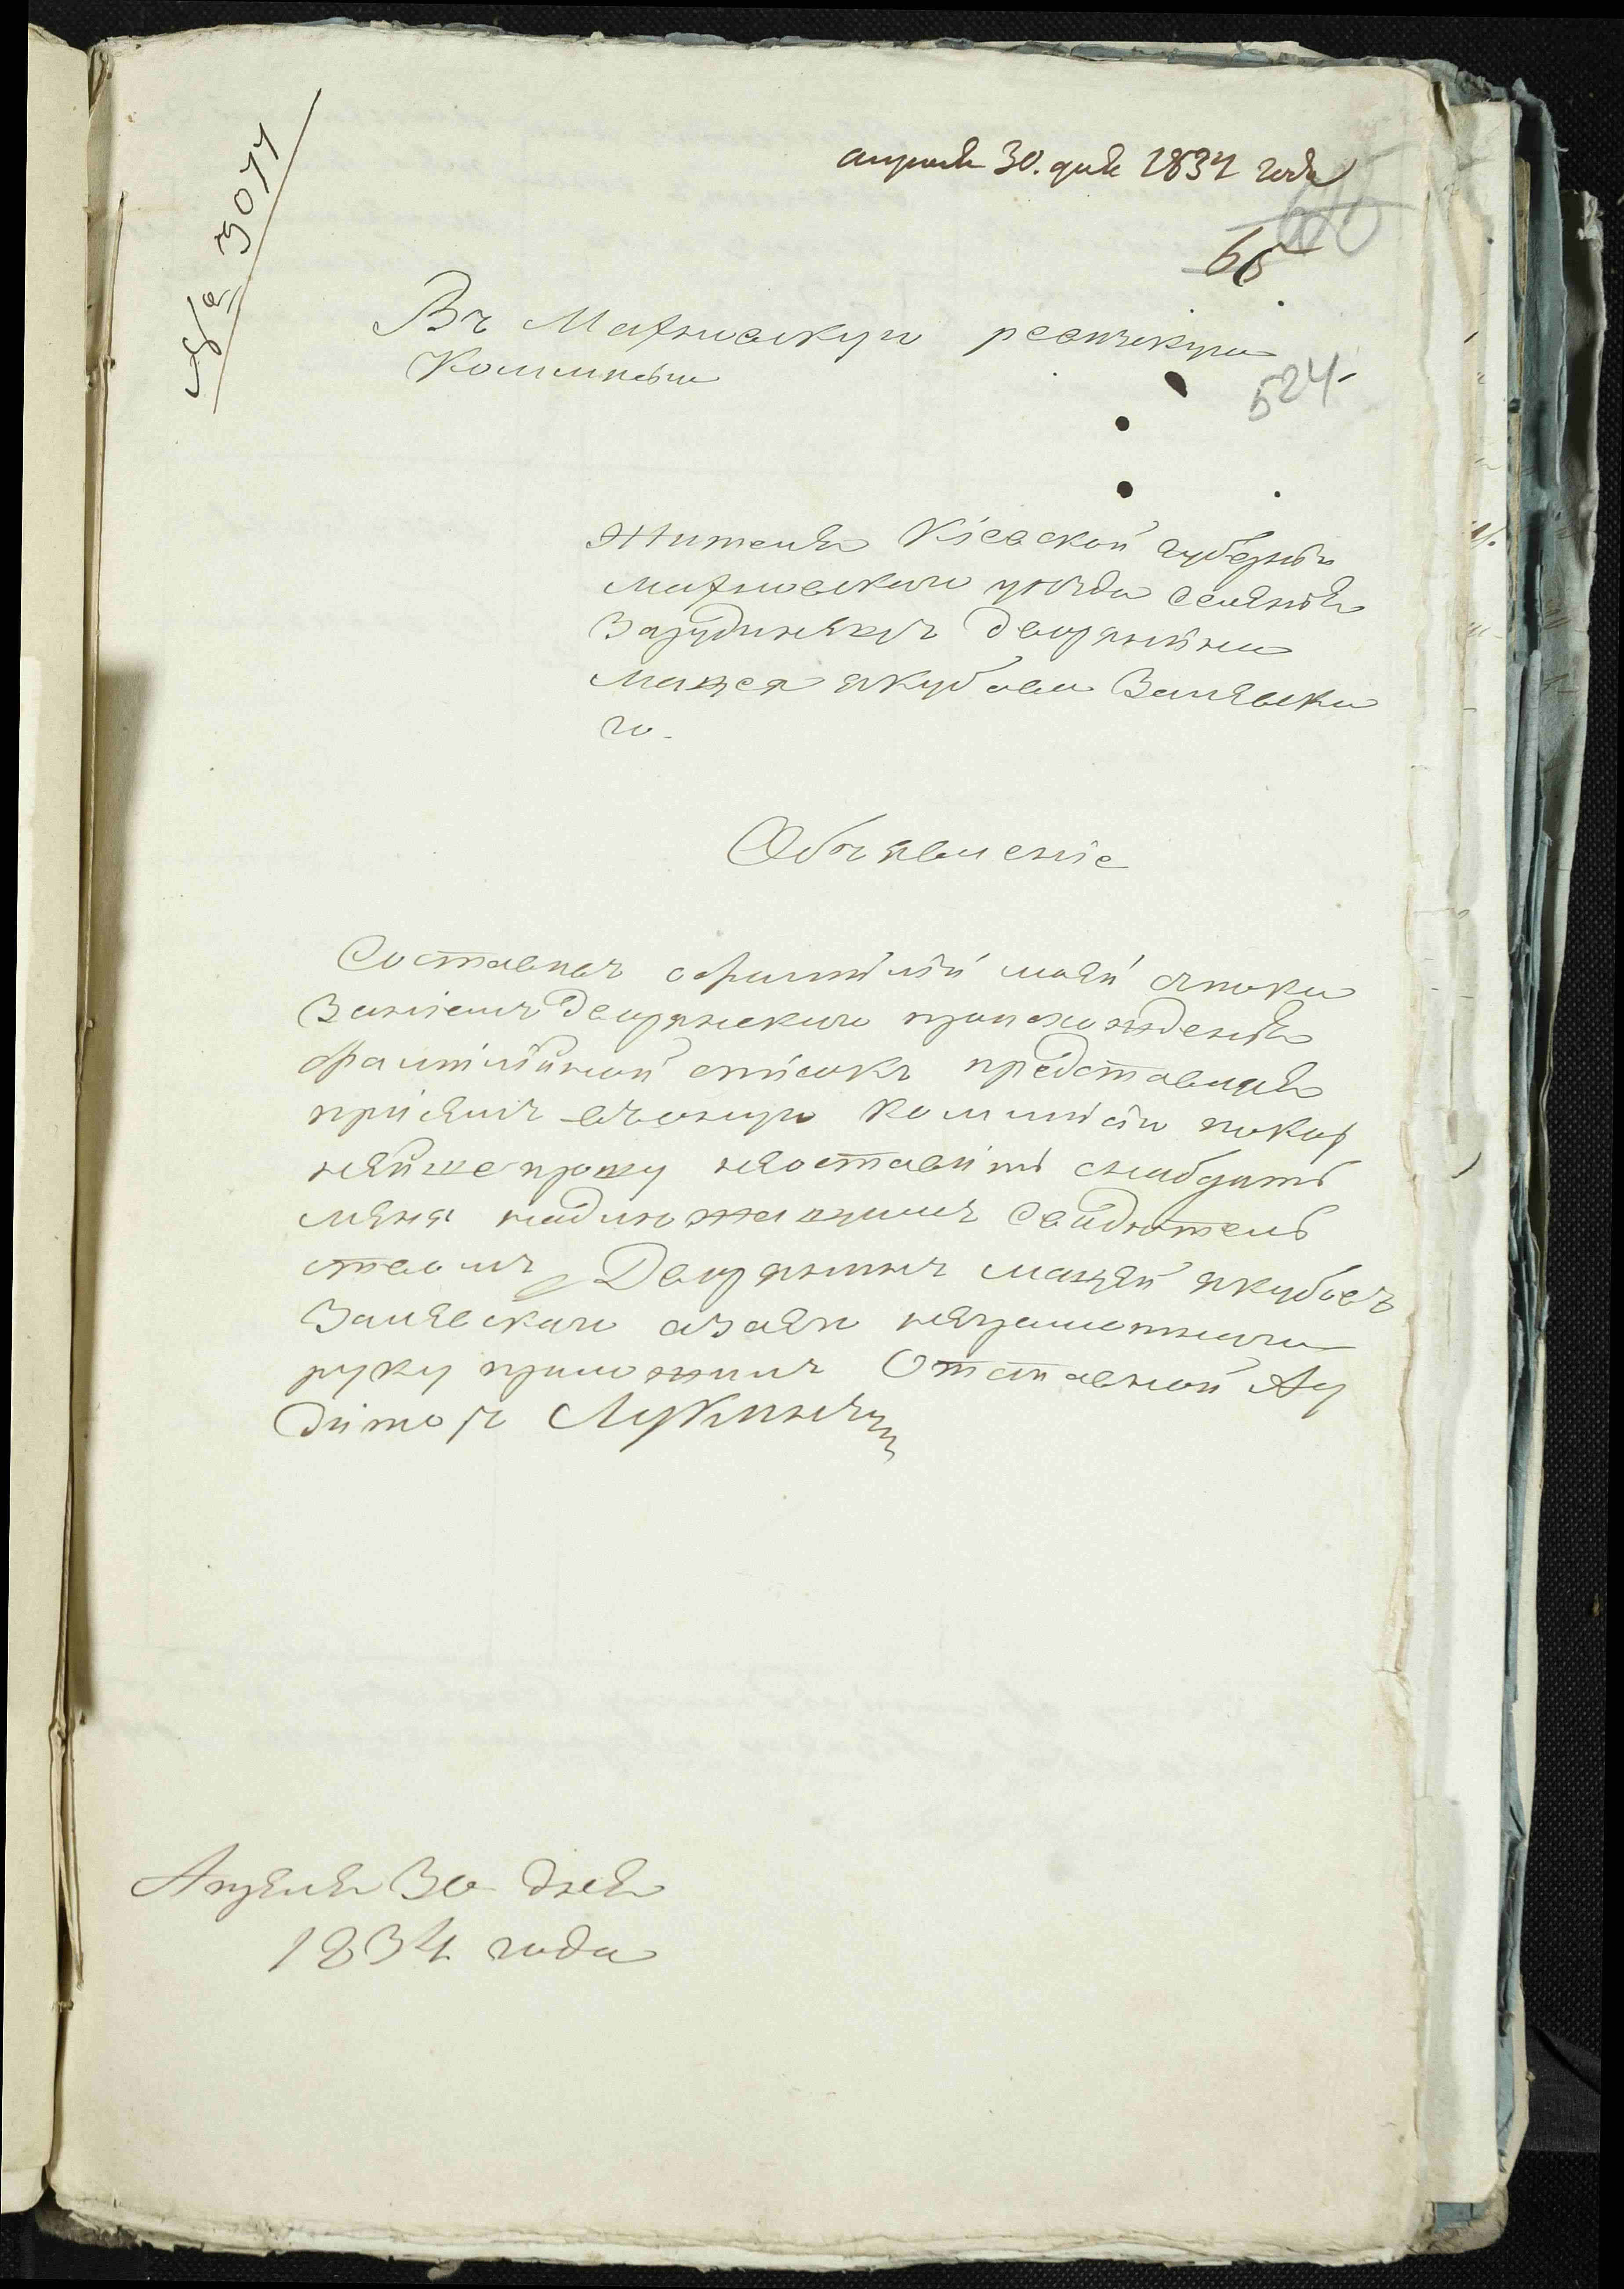 № 3077
апреля 30. дня 1834 года
66
524
Въ Махновскую ревизскую
Коммисію
Жителя Кіевской губерніи
Махновскаго уѣзда Селенія
Зарудинецъ дворянина
Мацея якубова Залевска
го.
Объявленіе
Составивъ офамиліи моей
Званіемъ дворянскаго происхожденія
фамилійный списокъ представляя
присемъ въоную Коммисію покор
нейше прошу неоставить снабдить
меня надлежащимъ Свидетель
ствомъ Дворянинъ мацей якубовъ
Залевскаго неграмотнаго
руку приложилъ Отставной Ау
диторъ Лукинъ
Апреля 30 дня
1834 года